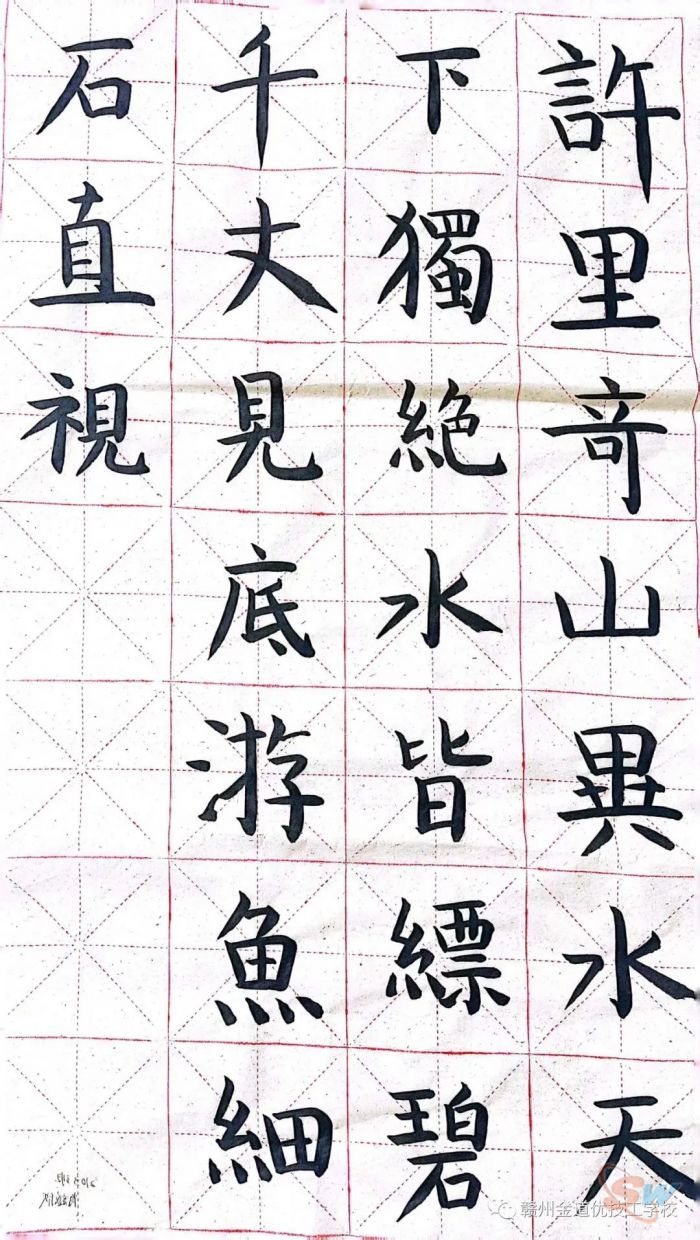 許里奇山異水天
下獨絕水皆縹碧
千丈見底游魚細
石直視
赣州金道优技工学校
SW